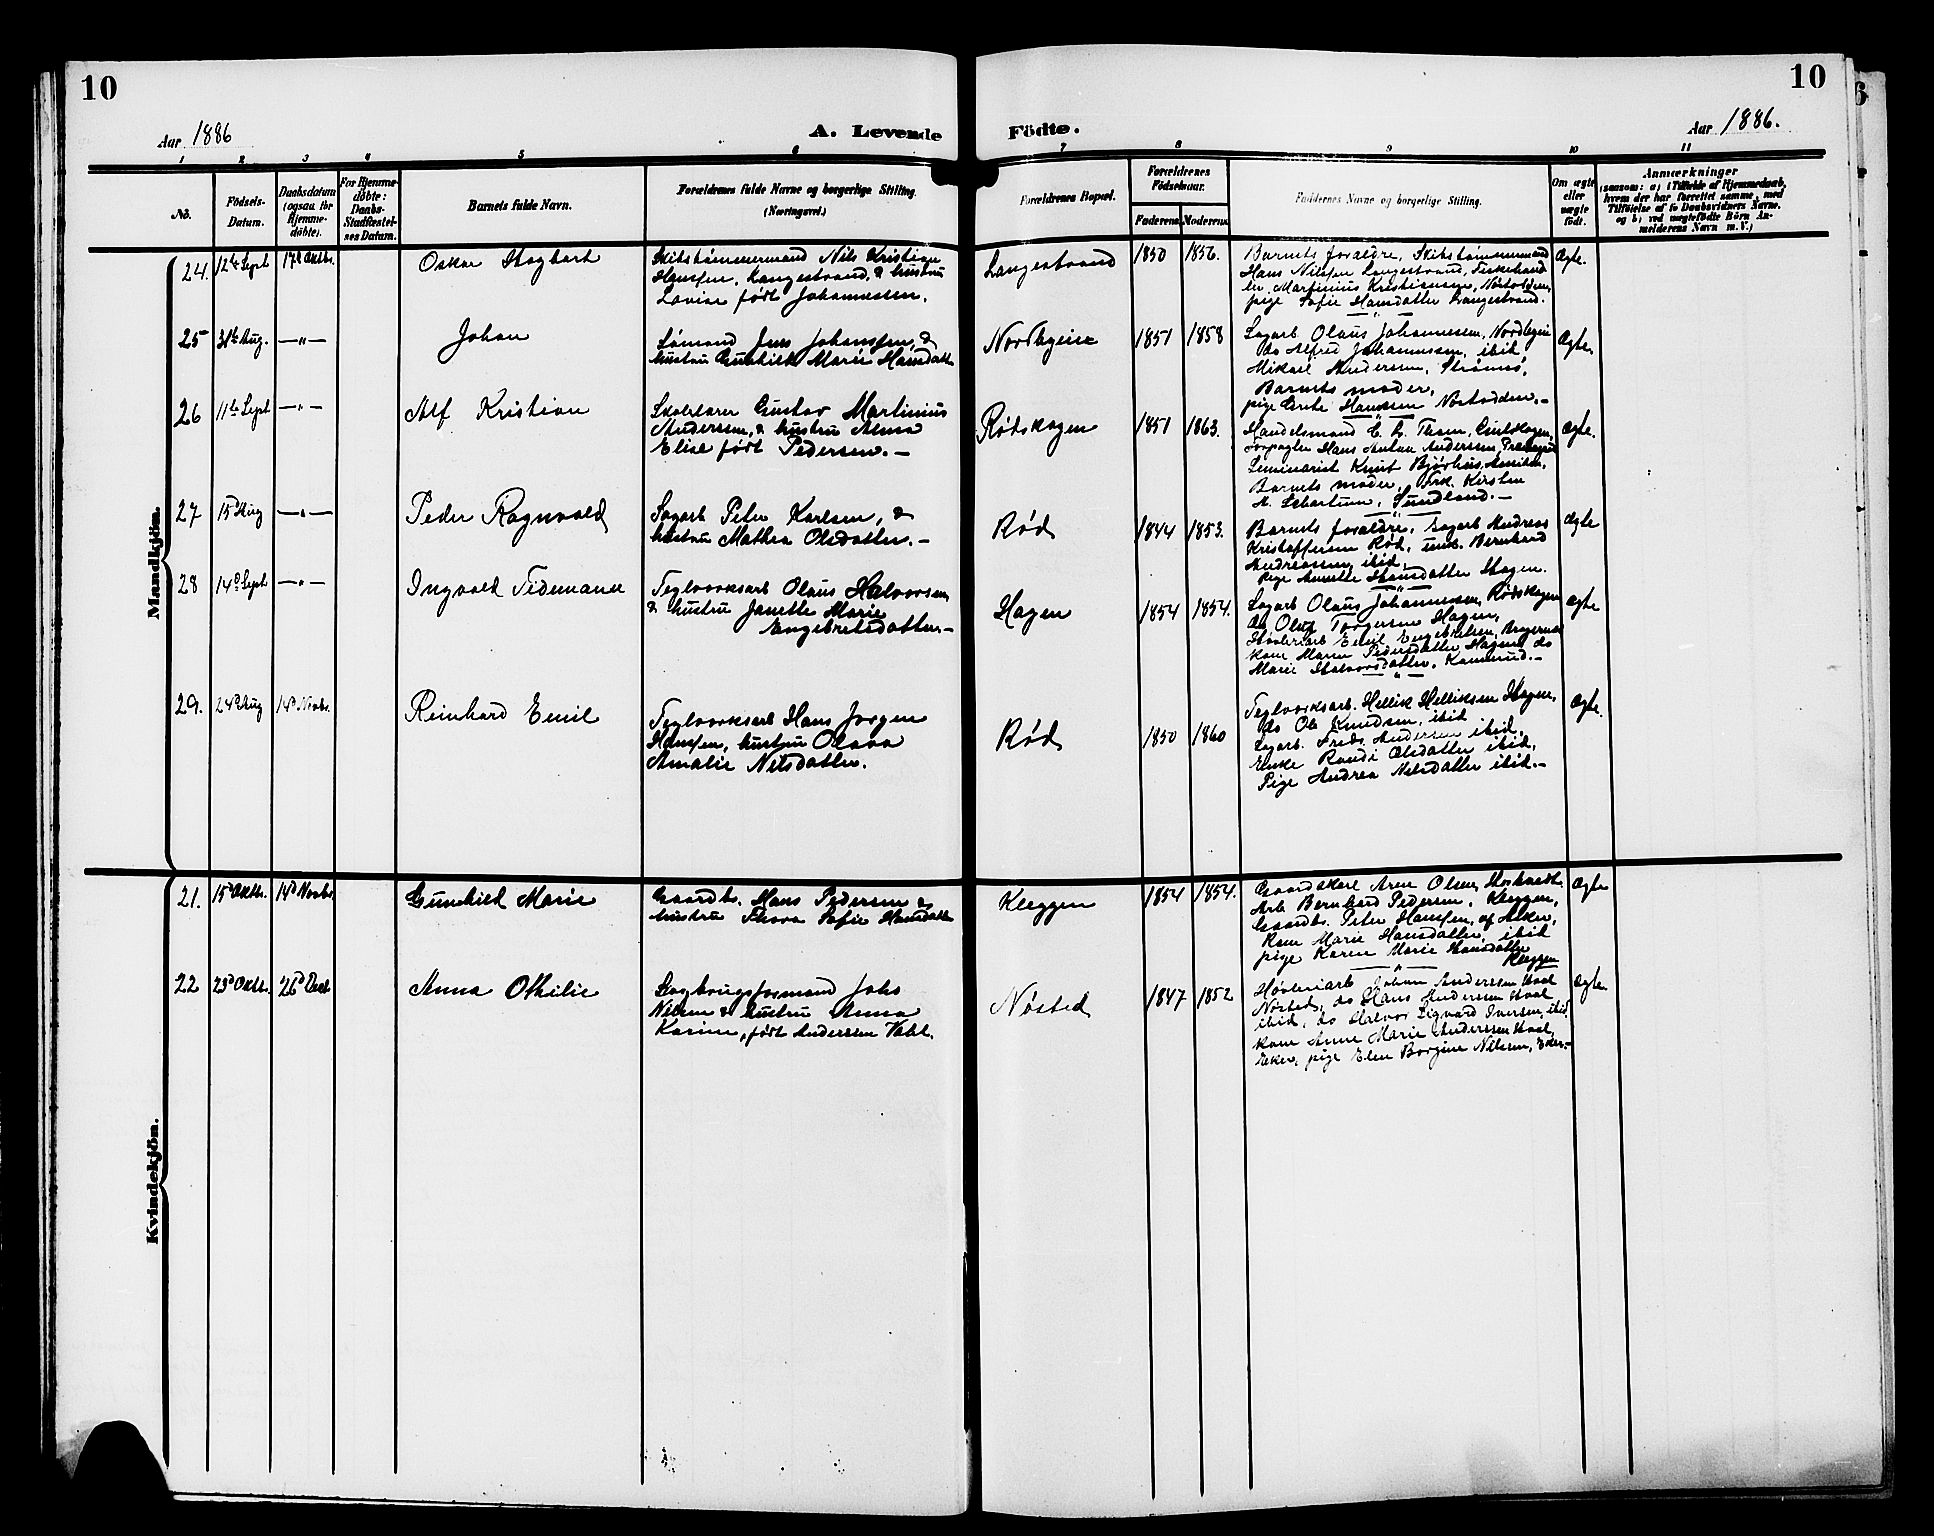 10
10
Aar 1886
A. Levende Födte.
Aar 1886.
1 2 3 4 5 6 7 8 9 10 11
No.
Födsels-
Datum.
Daabsdatum
(ogsaa for
Hjemme-
döbte).
For Hjemme-
döbte:
Daabs-
Stadfæstel-
ses Datum.
Barnets fulde Navn.
Forældrenes fulde Navne og borgerlige Stilling.
(Næringsvei.)
Forældrenes Bopæl.
Forældrenes
Födselsaar.
Faderens. Moderens.
Faddernes Navne og borgerlige Stilling.
Om ægte
eller
uægte
født.
Anmærkninger
(saasom: a) i Tilfælde af Hjemmedaab,
hvem der har forrettet samme, med
Tilföielse af to Daabsvidners Navne,
og b) ved uægtefödte Börn An-
melderens Navn m. V.)
Mandkjön.
24. 12te Sept 17d Oktbr. Oskar Hagbart
Skibstømmermand Nils Kristian
Hansen, Langestrand, & hustru
Lovise født Johannessen.
Langestrand 1850 1856.
Barnets forældre, Skibstømmermand
Hans Nilsen Langestrand, Fiskehand
ler Martinius Kristiansen,
pige Sofie Hansdatter Langestrand.
Ægte.
25 31te Aug. —"— Johan
Sømand Jens Johanssen, &
hustru Gunhild Marie Hansdatt
Nordbyeie 1851 1858
Sagarb Olaus Johannessen, Nordbyeie
do Alfred Johannessen, ibid,
Mikael Andersen, Strømsø,
Barnets moder,
pige Grete Hanssen Nøstodden.—
Ægte.
26 11te Sept —"— Alf Kristian
Skolelærer Gustav Martinius
Anderssen, & hustru Anna
Elise født Pedersen.—
Rødskogen 1851 1863.
Handelsmand C. L. Tham,
Hans Anton Anderssen,
Seminarist Knut
Barnets moder, Frk. Kirsten
M. Schartum, Sundland.—
Ægte.
27 15d Aug —"— Peder Ragnvald
Sagarb Peter Karlsen, &
hustru Mathea Olsdatter.—
Rød 1844 1853.
Barnets forældre, Sagarb Andreas
Kristoffersen Rød, unk. Bernhard
Andreassen, ibid,
Pige Annette Hansdatter Hagen.
Ægte
28 14d Sept —"— Ingvald Tidemand
Teglværksarb Olaus Halvorsen
& hustru Janette Marie
Engebretsdatter.—
Hagen 1854 1854.
Sagarb Olaus Johannessen, Rødskogen
do Oluf Torgersen Hagen,
Høvleriarb Emil Engebretsen,
kone Maren Pedersdatter Hagen, do
Marie Halvorsdatter,
Ægte
29. 24d Aug 14d Novbr. Reinhard Emil
Teglværksarb Hans Jørgen
Hanssen, hustru Olava
Amalie Nilsdatter.
Rød 1850 1860
Teglværksarb. Hellik Helliksen Hagen,
do Ole Knudsen, ibid
Sagarb. Fredr. Andersen ibid,
Enke Randi Olsdatter ibid,
Pige Andrea Nilsdatter ibid.—
Ægte.
Kvindekjön.
21. 15d Oktbr. 14d Novbr Gunhild Marie
Gaardbr. Hans Pedersen &
hustru Thora Sofie Hansdatter
Kleggen 1854 1854.
Gaardskarl Arne Olsen
Arb Bernhard Pedersen, Kleggen,
Gaardbr. Peter Hanssen, af Asker,
Kone Marie Hansdatter, ibid
pige Karen Marie Hansdatter
Kleggen
Ægte
22 23d Oktbr. 26d Decbr Anna Othilie
Sagbrugsformand Johs
Nilsen & hustru Anna
Karine, født Anderssen Vahl.
Nøsted 1847 1852
Høvleriarb Johan Anderssen
Nøsted, do Hans Anderssen
ibid, do Halvor Sigvard Iversen, ibid
kone Anne Marie Anderssen
Eker, pige Elen Borgine Nilsen, Eker.—
Ægte